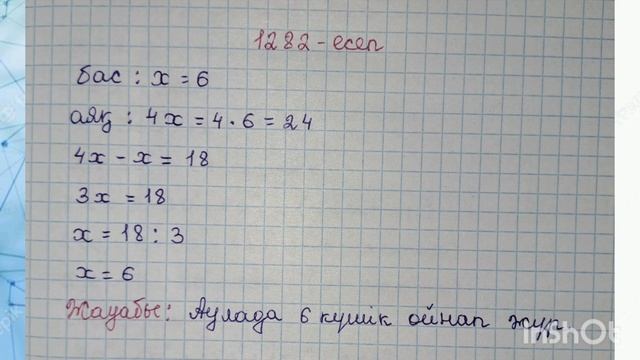 1282-есеп
бас : x = 6
аяқ : 4x = 4 · 6 = 24
4x - x = 18
3x = 18
x = 18 : 3
x = 6
Жауабы: Аулада 6 күшік ойнап жүр
InShOt